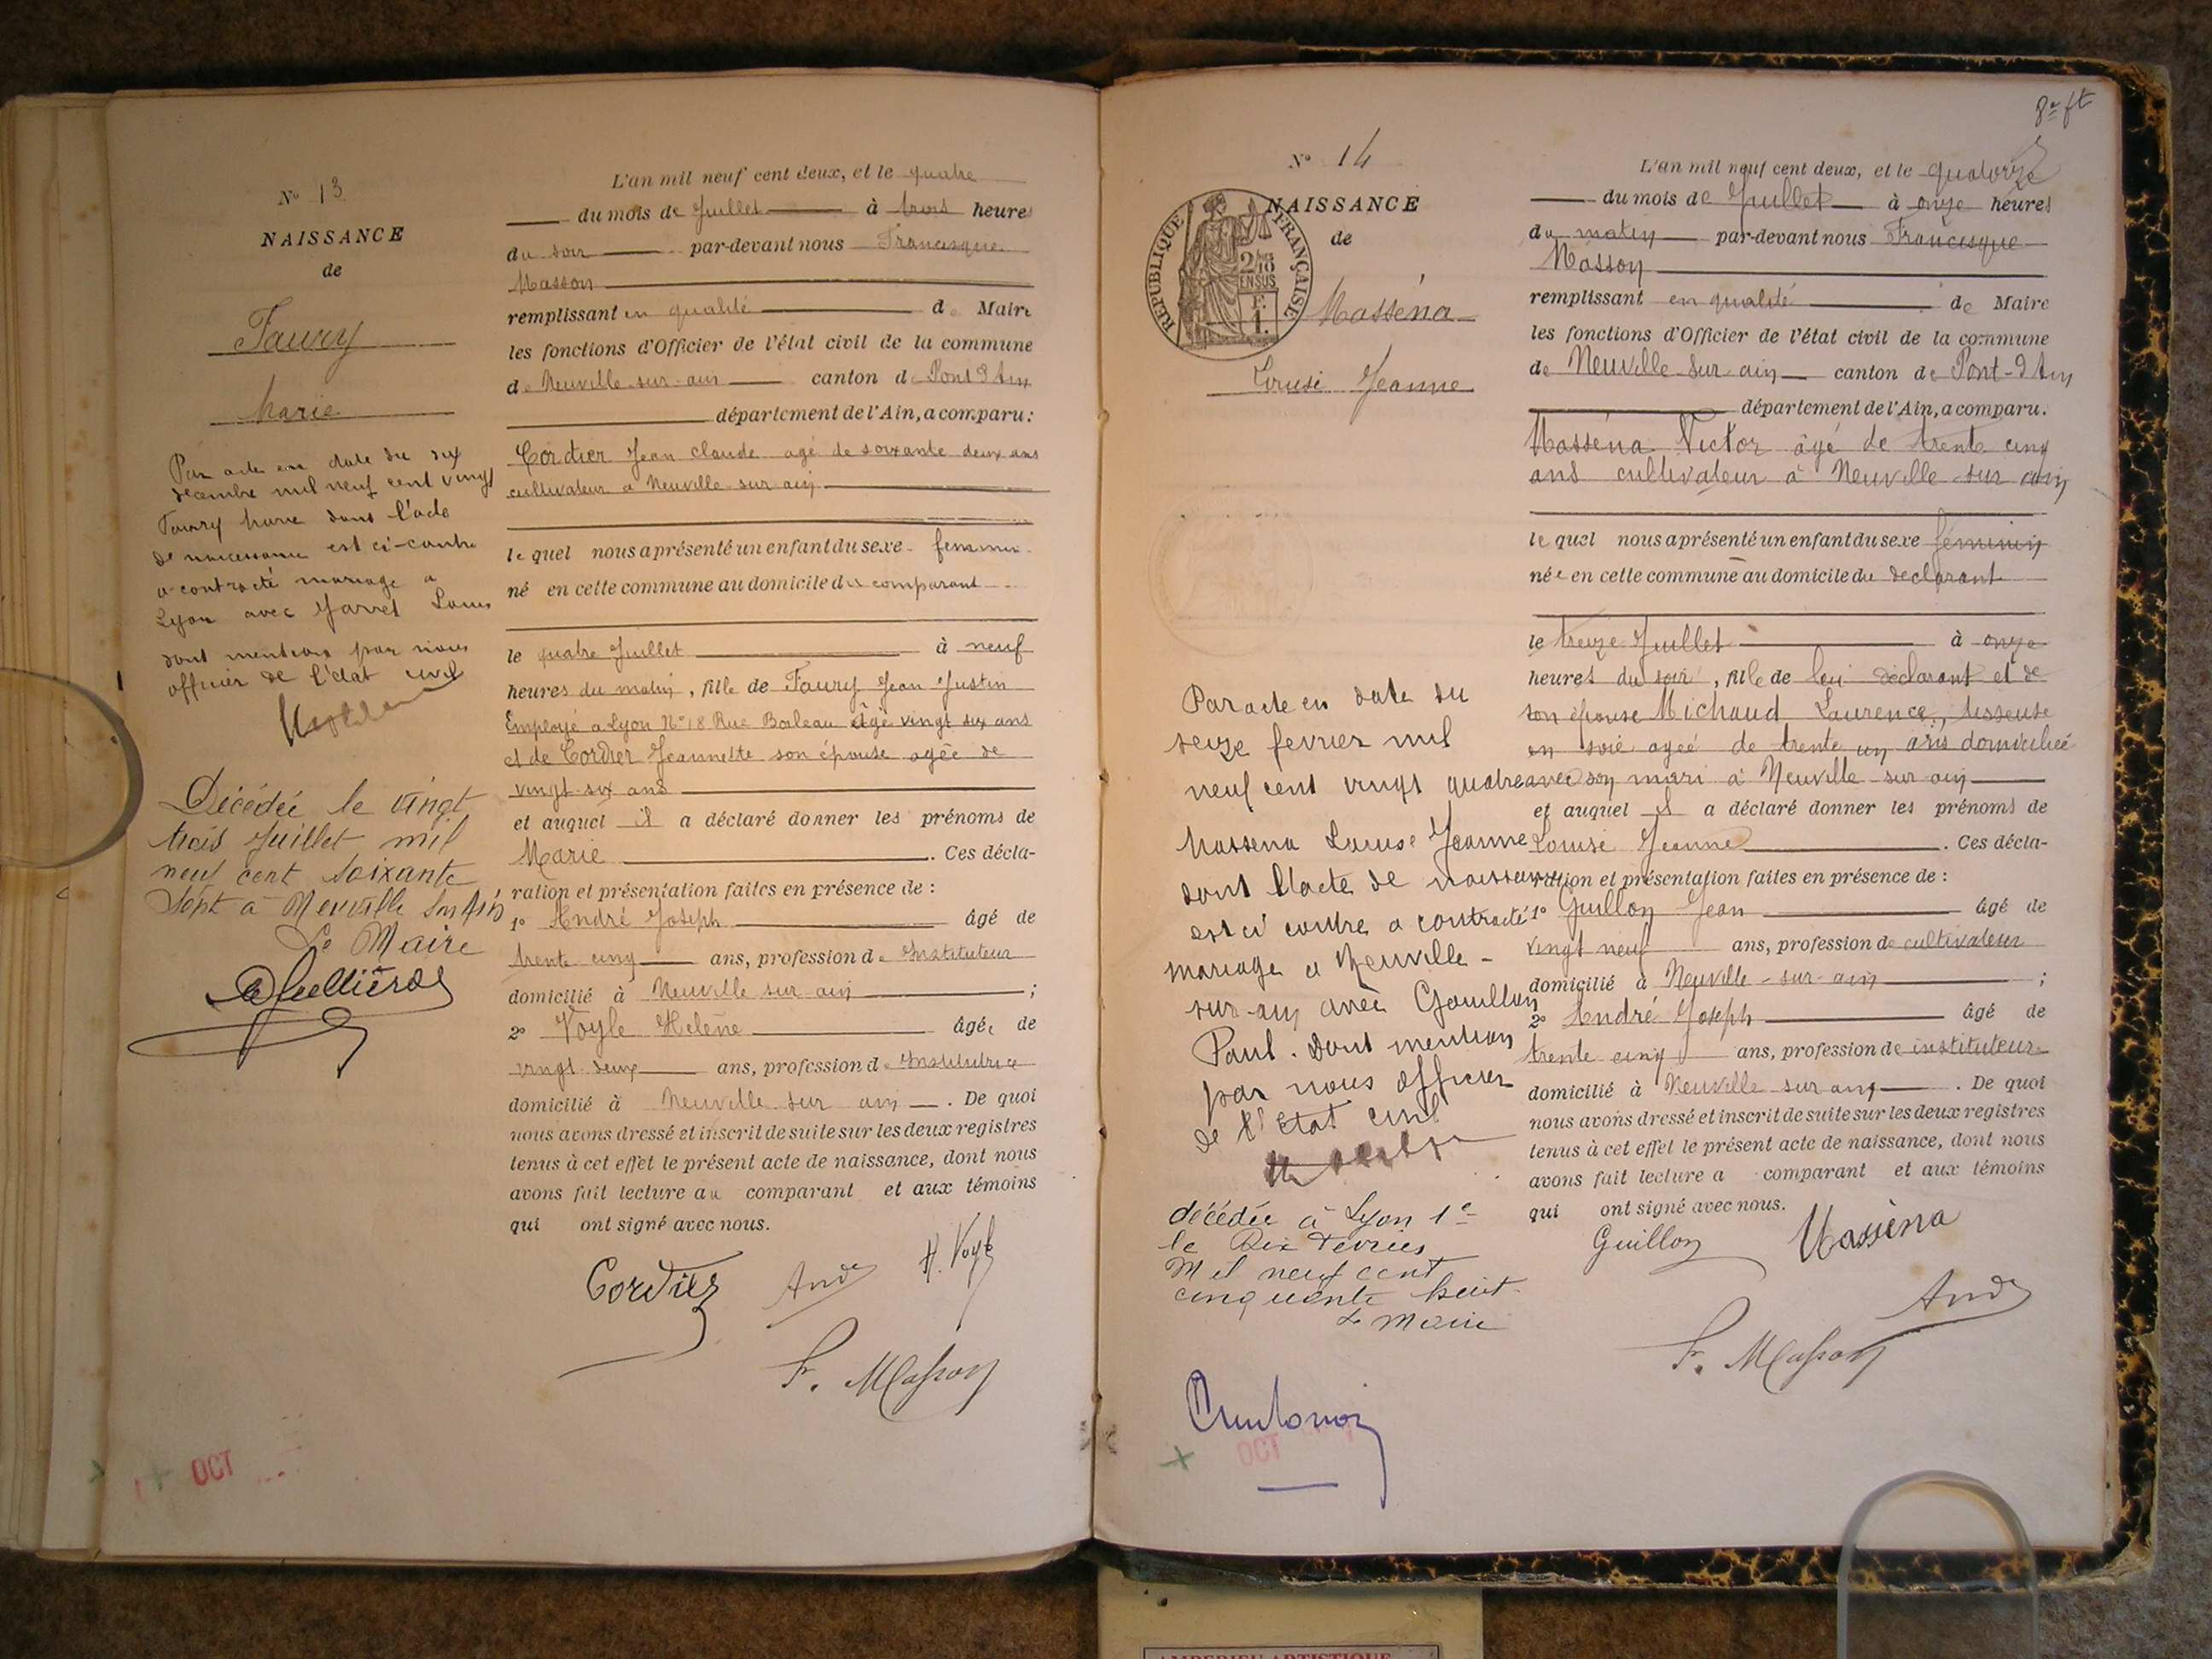 N° 13
NAISSANCE
de
Faury
Marie
Par acte en date du six
décembre mil neuf cent vingt
Faury Marie dont l'acte
de naissance est ci-contre
a contracté mariage a
Lyon avec Jarret Louis
dont mention par nous
officier de l'état civil
Décédée le vingt
trois Juillet mil
neuf cent soixante
sept à Neuville sur Ain
Le Maire
L'an mil neuf cent deux, et le quatre
du mois de Juillet à trois heures
du soir par-devant nous Francisque
Masson
remplissant en qualité de Maire
les fonctions d'Officier de l'état civil de la commune
de Neuville-sur-ain canton de Pont d'Ain
département de l'Ain, a comparu:
Cordier Jean claude agé de soixante deux ans
cultivateur a Neuville-sur-ain
le quel nous a présenté un enfant du sexe féminin
né en cette commune au domicile du comparant
le quatre Juillet à neuf
heures du matin, fille de Faury Jean Justin
Employé a Lyon N° 18 Rue Boileau Agé vingt six ans
et de Cordier Jeannette son épouse agée de
vingt-six ans
et auquel il a déclaré donner les prénoms de
Marie. Ces décla-
ration et présentation faites en présence de :
1° André Joseph âgé de
trente cinq ans, profession d'Instituteur
domicilié à Neuville sur ain ;
2° Voyle Hélène âgée de
vingt deux ans, profession d'Institutrice
domicilié à Neuville sur ain. De quoi
nous avons dressé et inscrit de suite sur les deux registres
tenus à cet effet le présent acte de naissance, dont nous
avons fait lecture au comparant et aux témoins
qui ont signé avec nous.
Cordier André H. Voyle
F. Masson
OCT
8e ft
N° 14
NAISSANCE
de
RÉPUBLIQUE FRANÇAISE
2/10 EN SUS
F.
1.
Masséna
Louise Jeanne
Par acte en date du
seize fevrier mil
neuf cent vingt quatre
Massena Louise Jeanne
dont l'acte de naissance
est ci contre a contracté
mariage a Neuville-
sur-ain avec Gouillon
Paul. Dont mention
par nous officier
de l'Etat civil
décédée à Lyon 1e
le Dix Février
Mil neuf cent
cinquante huit
Le Maire
OCT
L'an mil neuf cent deux, et le quatorze
du mois de Juillet à onze heures
du matin par-devant nous Francisque
Masson
remplissant en qualité de Maire
les fonctions d'Officier de l'état civil de la commune
de Neuville-sur-ain canton de Pont-d'Ain
département de l'Ain, a comparu.
Masséna Victor âgé de trente cinq
ans cultivateur à Neuville-sur ain
le quel nous a présenté un enfant du sexe féminin
née en cette commune au domicile du declarant
le treize Juillet à onze
heures du soir, fille de lui déclarant et de
son épouse Michaud Laurence, tisseuse
en soie agée de trente un ans domiciliée
avec son mari à Neuville-sur-ain
et auquel il a déclaré donner les prénoms de
Louise Jeanne. Ces décla-
ration et présentation faites en présence de :
1° Guillon Jean âgé de
vingt neuf ans, profession de cultivateur
domicilié à Neuville-sur-ain ;
2° André Joseph âgé de
trente cinq ans, profession de instituteur
domicilié à Neuville sur ain. De quoi
nous avons dressé et inscrit de suite sur les deux registres
tenus à cet effet le présent acte de naissance, dont nous
avons fait lecture a comparant et aux témoins
qui ont signé avec nous.
Guillon Masséna
André
F. Masson
AMBERIEU ARTISTIQUE